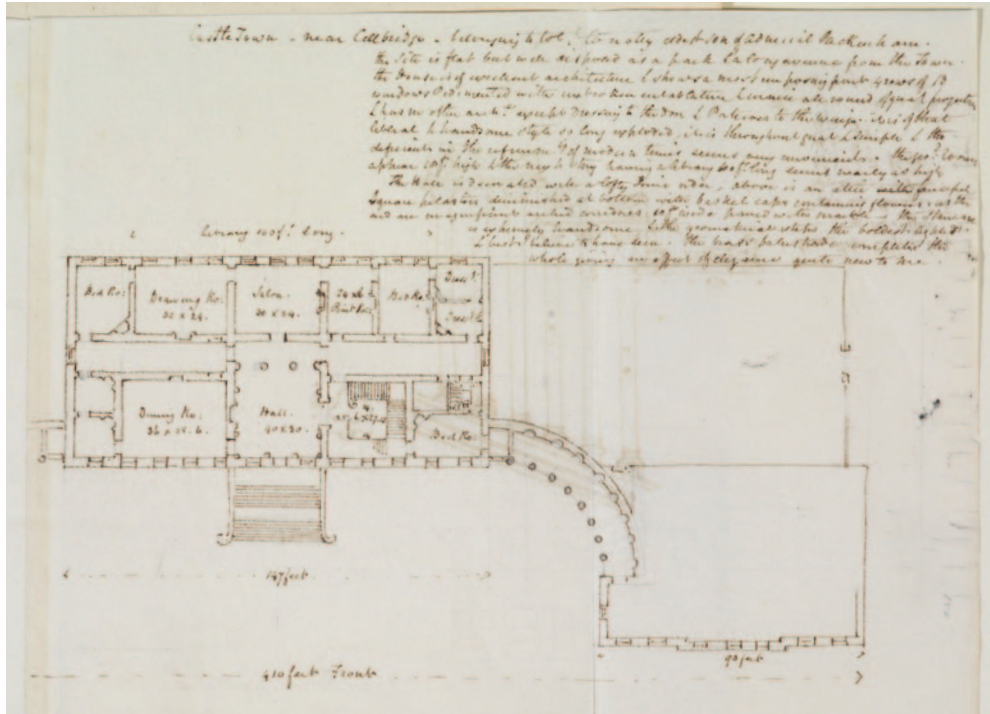 Castle Town - near Cellbridge - belonging to Col. Conolly eldest son of Admiral Pakenham.
the Site is flat but well disposed as a park & a long avenue from the Town.
the House is of excellent architecture & shews a most imposing front 4 rows of 13
windows Pedimented with unbroken entablature & cornice all round of great projection
& has no other except dressing to the door & to the wings. It is of that
liberal & handsome style so long exploded, it is throughout great & simple & tho
deficient in the refinem.ts of modern times seems
appear high & the next story having a library 100 f. long seems nearly as high
The Hall is decorated with a lofty Ionic order, above is an attic with
Square pilasters diminished at bottom with basket caps containing flowers
and are magnificent arched corridors, 10 f. wide paved with marble - the Staircase
is extremely handsome & the geometrical steps the boldest
I believe to have seen. The brass balustrade completes the
whole giving an effect of elegance quite new to me.
Library 100 f. long.
Bed Ro:
Drawing Ro.
32 x 24.
Salon.
30 x 24.
24 x 16
Bed Ro:
Dress.g
Dress.g
Dining Ro:
36 x 25.6.
Hall.
40 x 30.
Bed Ro
147 feet.
90 feet
410 feet Front